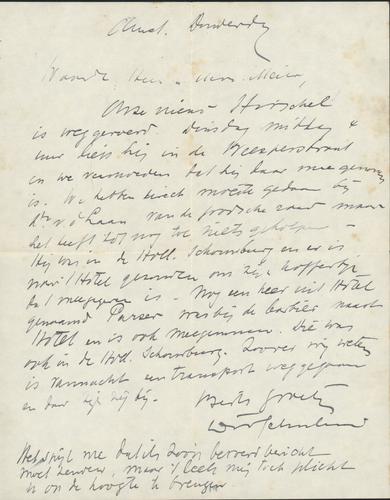 Amst. Donderdag
Waarde Heer en Mevr. Meier,
Onze nieuwe Herschel
is weggevoerd Dinsdag middag 4
uur liep hij in de Weesperstraat
en we vermoeden dat hij daar meegenomen
is. We hebben direct moeite gedaan bij
Dr. v. d. Laan van de Joodsche raad maar
het heeft tot nog toe niets geholpen -
Hij was in de Holl. Schouwburg en er is
naar 't Hotel gezonden om zijn koffertje
dat meegegeven is - Nog een heer uit Hotel
genaamd Parser was bij de barbier naast
Hotel en is ook meegenomen. Die was
ook in de Holl. Schouwburg. Zoover wij weten
is vannacht een transport weggegaan
en daar zijn zij bij.
Beste groeten
Het spijt me dat ik zoo'n beroerd bericht
moet zenden, maar 't leek mij toch plicht
U op de hoogte te brengen